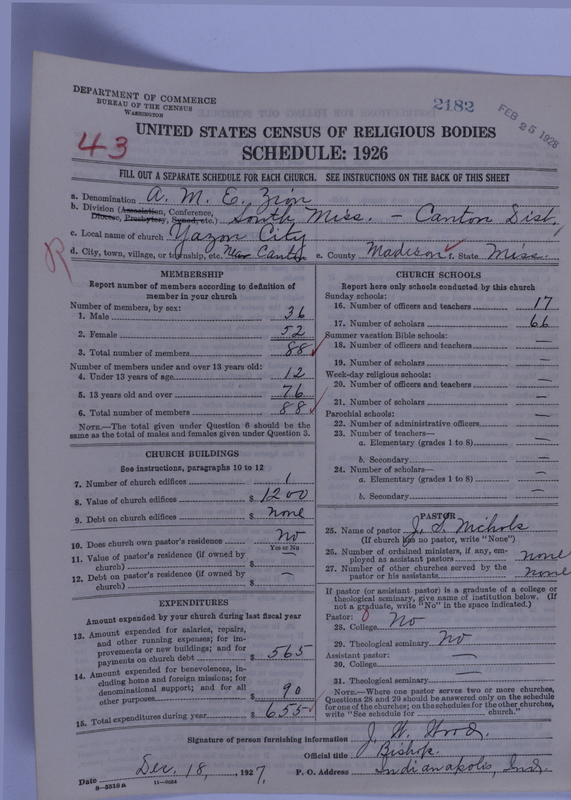 DEPARTMENT OF COMMERCE
BUREAU OF THE CENSUS
WASHINGTON
2182
FEB 25 1928
43
UNITED STATES CENSUS OF RELIGIOUS BODIES
SCHEDULE: 1926
FILL OUT A SEPARATE SCHEDULE FOR EACH CHURCH. SEE INSTRUCTIONS ON THE BACK OF THIS SHEET
a. Denomination A. M. E. Zion
b. Division (Association, Conference, Diocese, Presbytery, Synod, etc.) South Miss. - Canton Dist.
c. Local name of church Yazon City
d. City, town, village, or township, etc. Near Canton e. County Madison f. State Miss.
R
MEMBERSHIP
Report number of members according to definition of
member in your church
Number of members, by sex:
1. Male 36
2. Female 52
3. Total number of members 88
Number of members under and over 13 years old:
4. Under 13 years of age 12
5. 13 years old and over 76
6. Total number of members 88
NOTE.—The total given under Question 6 should be
same as the total of males and females given under Question 3.
CHURCH BUILDINGS
See instructions, paragraphs 10 to 12
7. Number of church edifices 1
8. Value of church edifices $ 1200
9. Debt on church edifices $ none
10. Does church own pastor's residence No
Yes or No
11. Value of pastor's residence (if owned by
church) $ —
12. Debt on pastor's residence (if owned by
church) $ —
EXPENDITURES
Amount expended by your church during last fiscal year
13. Amount expended for salaries, repairs,
and other running expenses; for im-
provements or new buildings; and for
payments on church debt $ 565
14. Amount expended for benevolences, in-
cluding home and foreign missions; for
denominational support; and for all
other purposes $ 90
15. Total expenditures during year $ 655
CHURCH SCHOOLS
Report here only schools conducted by this church
Sunday schools:
16. Number of officers and teachers 17
17. Number of scholars 66
Summer vacation Bible schools:
18. Number of officers and teachers —
19. Number of scholars —
Week-day religious schools:
20. Number of officers and teachers —
21. Number of scholars —
Parochial schools:
22. Number of administrative officers —
23. Number of teachers—
a. Elementary (grades 1 to 8) —
b. Secondary —
24. Number of scholars—
a. Elementary (grades 1 to 8) —
b. Secondary —
PASTOR
25. Name of pastor J. S. Nichols
(If church has no pastor, write "None")
26. Number of ordained ministers, if any, em-
ployed as assistant pastors none
27. Number of other churches served by the
pastor or his assistants none
If pastor (or assistant pastor) is a graduate of a college or
theological seminary, give name of institution below. (If
not a graduate, write "No" in the space indicated.)
Pastor:
28. College No
29. Theological seminary No
Assistant pastor:
30. College —
31. Theological seminary —
NOTE.—Where one pastor serves two or more churches,
Questions 28 and 29 should be answered only on the schedule
for one of the churches; on the schedules for the other churches,
write "See schedule for church."
Signature of person furnishing information J. W. Wood.
Official title Bishop.
Date Dec. 18, 1927, P. O. Address Indianapolis, Ind.
8-5518a 11-9084